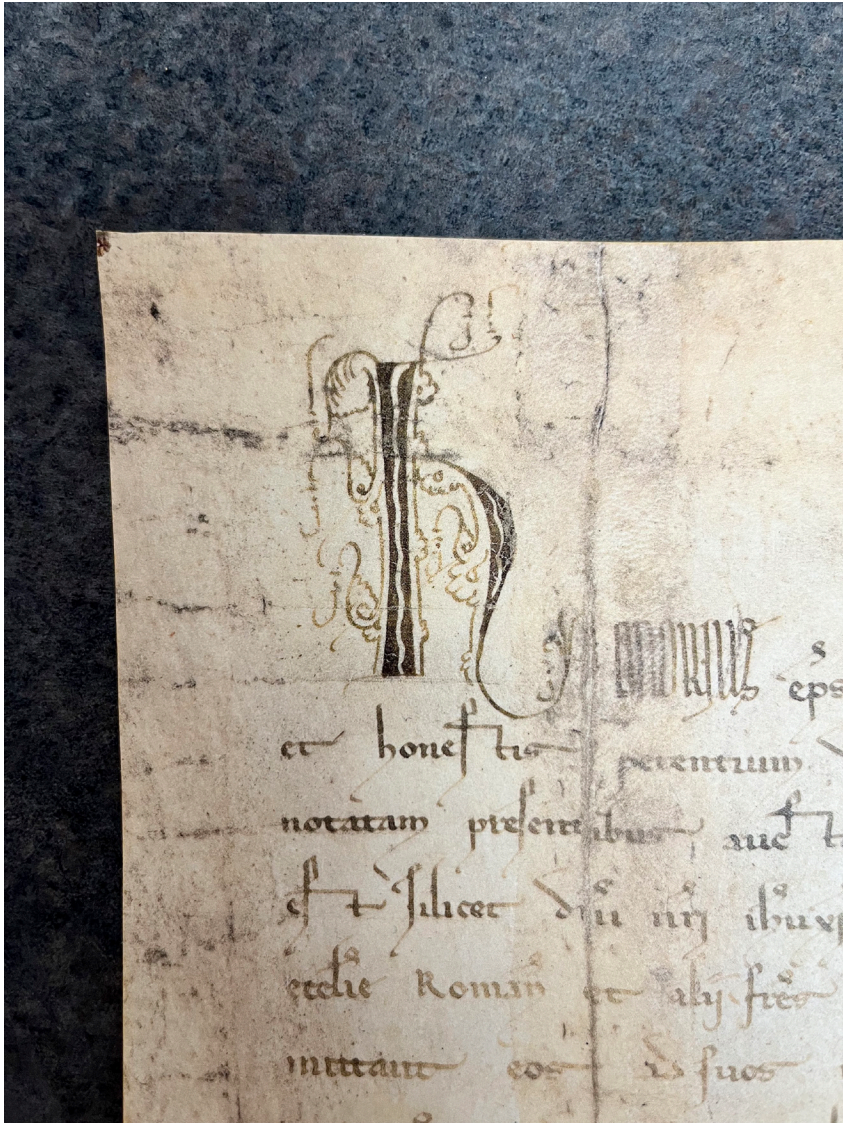 honorius eps
et honestis petentium
notatam presentibus auct
est silicet dni nri ihu xpi
ecclie Roman et alij fres
mittant eos ad suos